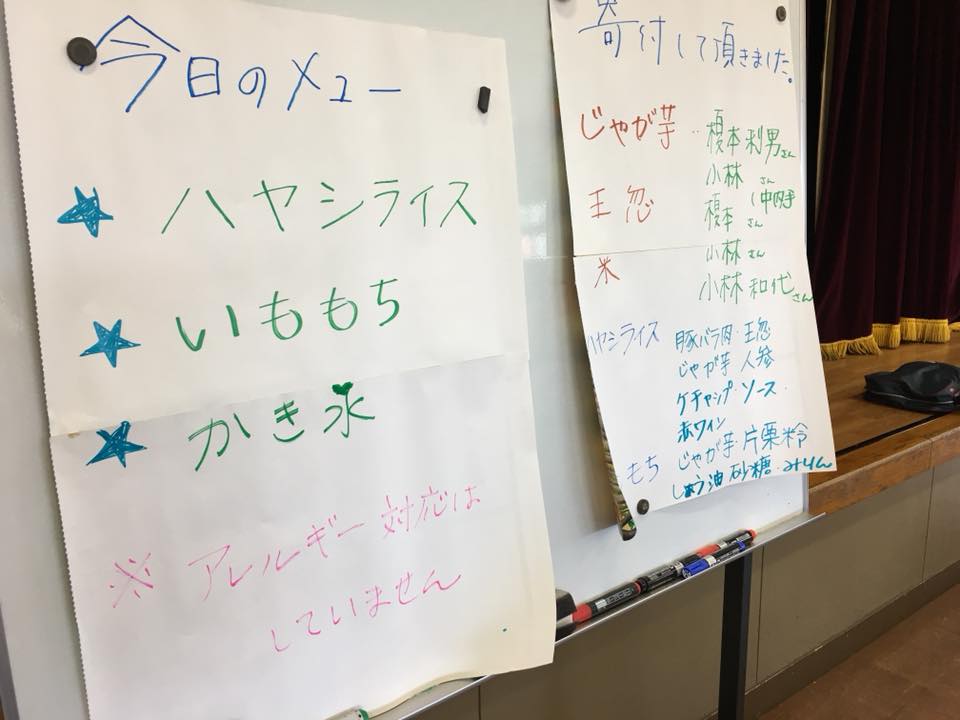 今日のメュー
★ ハヤシライス
★ いももち
★ かき氷
※ アレルギー対応は
していません
寄付して頂きました。
じゃが芋‥榎本利男さん
小林 さん
王忽 榎本 さん
小林 さん
米 小林和代さん
ハヤシライス 豚バラ肉・王忽
じゃが芋 人参
ケチャップ・ソース・
赤ワイン
もち じゃが芋・片栗粉
しょう油 砂糖・みりん